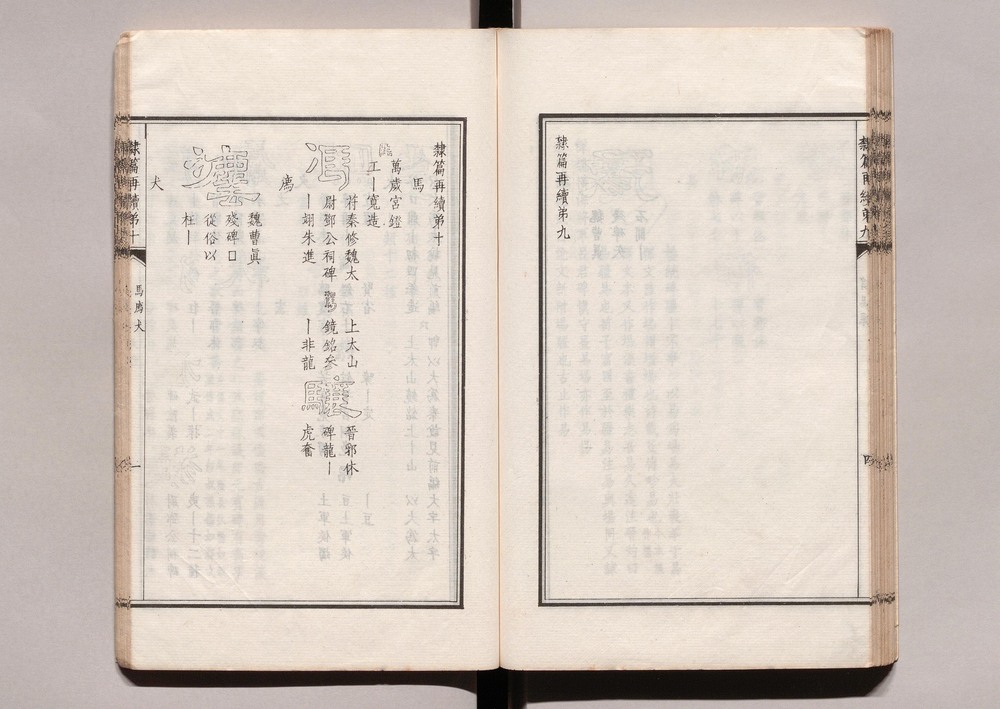 隸篇再續第九
隸篇再續第九
四
隸篇再續第十
馬
萬歲宮鐙
工一寬造
馮
苻秦修魏太
尉鄧公祠碑
一翊朱進
上太山
鏡銘參
一非龍
晉郛休
碑龍一
虎奮
廌
魏曹真
殘碑口
從俗以
枉一
犬
隸篇再續第十
馬廌犬
一